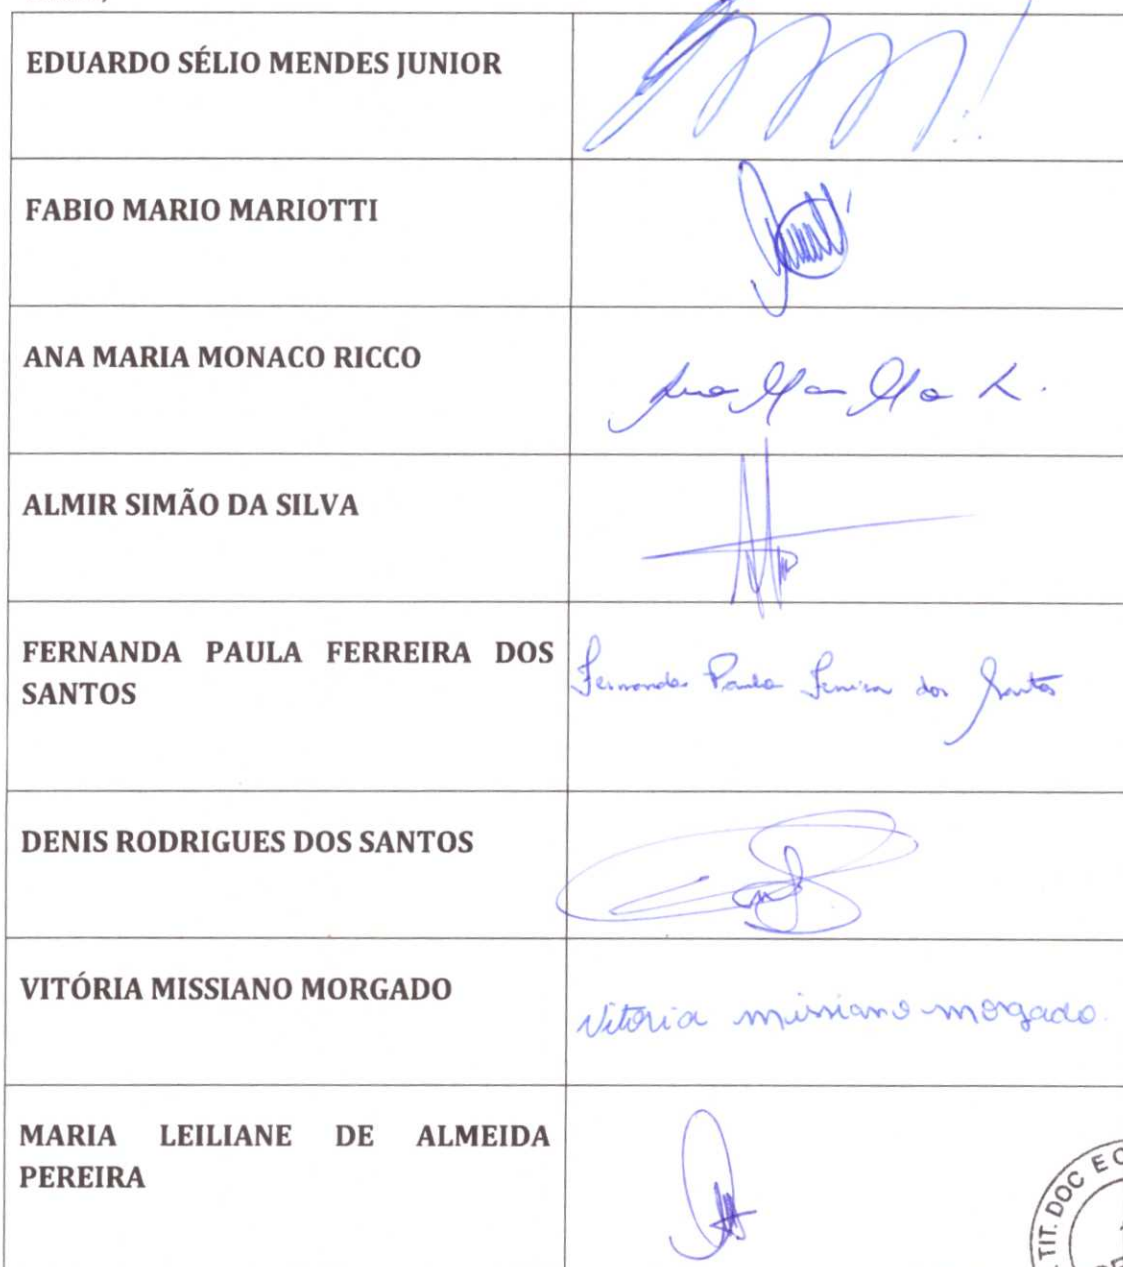 EDUARDO SÉLIO MENDES JUNIOR
FABIO MARIO MARIOTTI
ANA MARIA MONACO RICCO
ALMIR SIMÃO DA SILVA
FERNANDA PAULA FERREIRA DOS
SANTOS
Fernanda Paula Ferreira dos Santos
DENIS RODRIGUES DOS SANTOS
VITÓRIA MISSIANO MORGADO
Vitória missiano morgado.
MARIA LEILIANE DE ALMEIDA
PEREIRA
TIT. DOC E